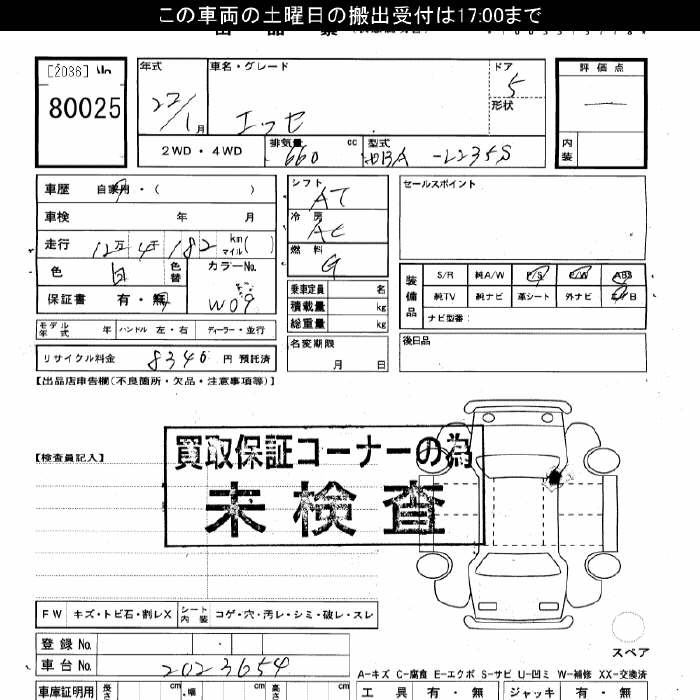 この車両の土曜日の搬出受付は17:00まで
[2036]
80025
年式 22/1月
車名・グレード エッセ
ドア 5
形状
評価点 —
内装
2WD・4WD
排気量 660 cc
型式 -L235S
車歴 自家用・( )
車検 年 月
走行 12万4千182 km マイル( )
色 白 色替 カラーNo. W09
保証書 有・無
モデル年式 年 ハンドル 左・右 ディーラー・並行
リサイクル料金 8340 円 預託済
シフト AT
冷房 AC
燃料 G
乗車定員 名
積載量 kg
総重量 kg
名変期限 月 日
セールスポイント
装備品 S/R 純A/W P/S P/W ABS
純TV 純ナビ 革シート 外ナビ エアB
ナビ型番:
後日品
【出品店申告欄(不良箇所・欠品・注意事項等)】
【検査員記入】
買取保証コーナーの為
未検査
FW キズ・トビ石・割レX シート内装 コゲ・穴・汚レ・シミ・破レ・スレ
登録No.
車台No. 2023654
スペア
A-キズ C-腐食 E-エクボ S-サビ U-凹ミ W-補修 XX-交換済
車庫証明用 長さ cm 幅 cm 高さ cm
工具 有・無 ジャッキ 有・無